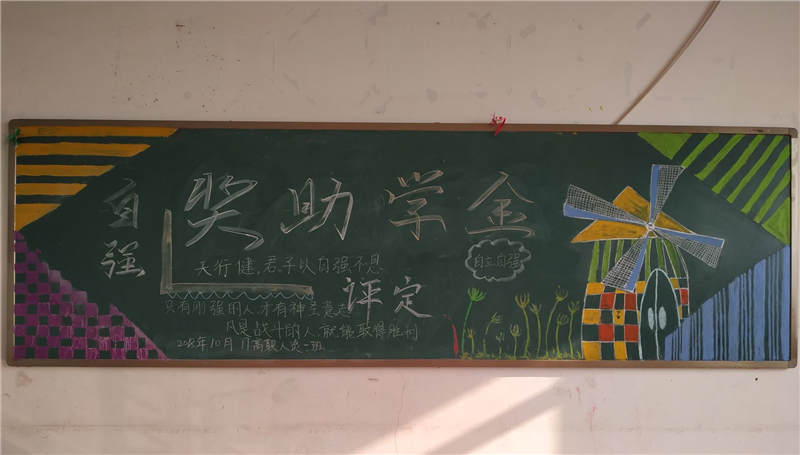 自强
奖助学金
评定
天行健,君子以自强不息
自立自强
只有刚强的人,才有神圣意志
凡是战斗的人,就能取得胜利
2018年10月 17高职人资一班